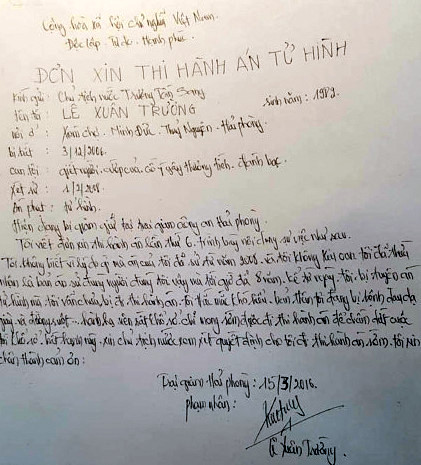 Cộng hòa xã hội chủ nghĩa Việt Nam.
Độc lập. Tự do. Hạnh phúc.
ĐƠN XIN THI HÀNH ÁN TỬ HÌNH
Kính gửi: Chủ tịch nước Trương Tấn Sang
Tên tôi: LÊ XUÂN TRƯỜNG sinh năm: 1982
nơi ở: Xóm chợ. Minh Đức. Thuỷ Nguyên. Hải phòng.
bị bắt: 3/12/2006.
can tội: giết người. cướp của. cố ý gây thương tích. đánh bạc.
Xét xử: 1/2/2008.
Án phạt: tử hình.
Hiện đang bị giam giữ tại trại giam công an Hải phòng.
Tôi viết đơn xin thi hành án lần thứ 6. trình bày nội dung sự việc như sau.
Tôi không biết vì lý do gì mà án của tôi đã sử từ năm 2008. và tôi không kháng cáo tôi đã
nhận là bản án sử đúng người đúng tội vậy mà tới giờ đã 8 năm. kể từ ngày tôi bị tuyên án
tử hình mà tôi vẫn chưa bị đi thi hành án. tôi rất khổ. bản thân tôi đang bị bệnh dạ dày
và đường ruột... hành hạ nên rất khổ sở chỉ mong sớm được đi thi hành án để chấm dứt cuộc
khổ sở. bất hạnh này. xin chủ tịch nước xem xét quyết định cho tôi đi thi hành án sớm. tôi xin
chân thành cảm ơn:
Trại giam Hải phòng: 15/3/2016.
phạm nhân:
Lê Xuân Trường.